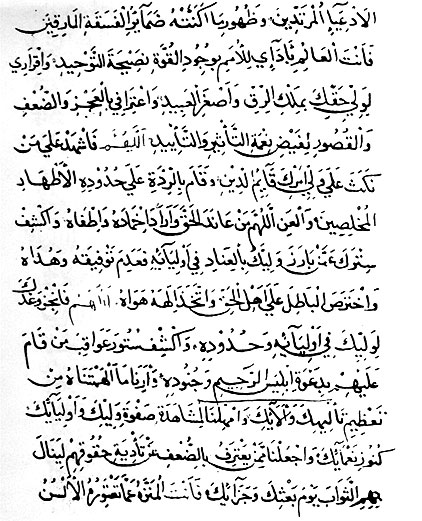 الادعيآ المرتدين، وظهور ما اكنته ضمآئر الفسقة المارقين
فانت العالم بنداي للامم بوجود القوة بصيحة التوحيد، واقراري
لولي حقك بملك الرق واصغر العبيد واعترافي بالعجز والضعف
والقصور لغيض نعمة التأثير والتأييد اللهم فاشهد علي من
نكث علي ولي امرك قايم الدين، وقام بالردة علي حدوده الاطهار
المخلصين، والعن اللهم من عاند الحق واراد اخماده واطفاه، واكشف
سترك عمن بارز وليك بالعناد في اوليآئه، فعدم توفيقه وهداه
واخترص الباطل علي اهل الحق واتخذ الهه هواه. اللهم فانجز وعدك
لوليك في اوليآئه وحدوده، واكشف ستور عواقب من قام
عليهم بدعوة ابليس الرجيم وجنوده، وارنا ما الهمتناه من
تعظيم تأليهك وآلايك وامهلنا لمشاهدة صفوة وليك واوليآئك
كنوز نعمآئك، واجعلنا ممن يعترف بالضعف عن تأدية حقوقهم لينال
بهم الثواب يوم بعثك وجزآئك، فانت المنزه عما تعتوره الالسن